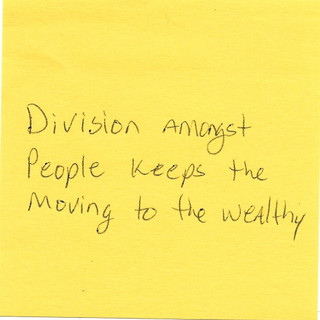 Division Amongst
People Keeps the
Moving to the WeAlthy